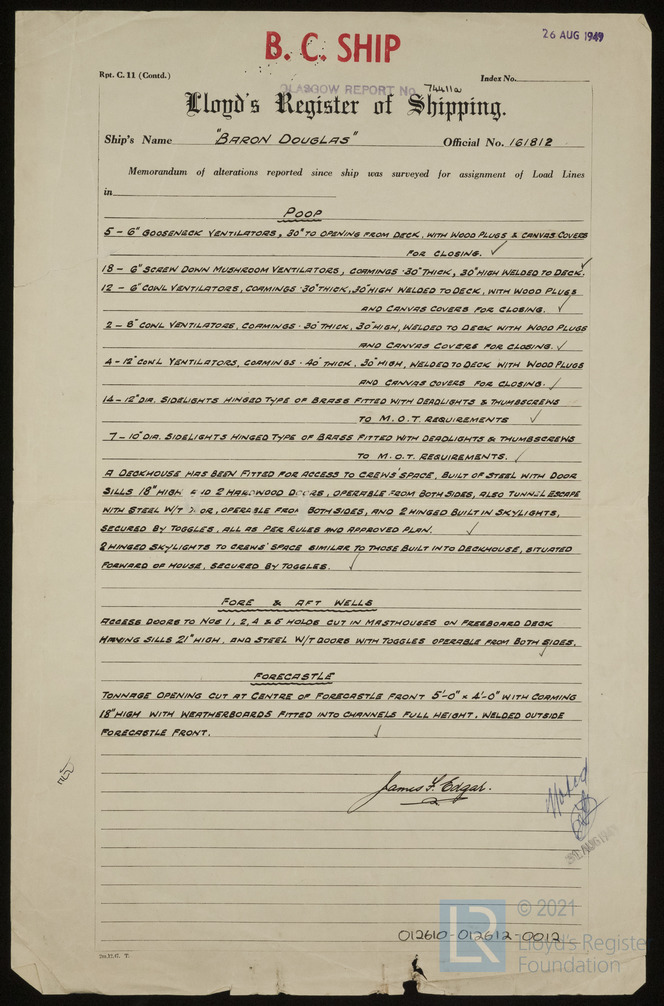 26 AUG 1949
B. C. SHIP
Rpt. C. 11 (Contd.)
Index No.
GLASGOW REPORT No. 74411a
Lloyd's Register of Shipping.
Ship's Name "BARON DOUGLAS" Official No. 161812
Memorandum of alterations reported since ship was surveyed for assignment of Load Lines
in
POOP
5 - 6" GOOSENECK VENTILATORS, 30" TO OPENING FROM DECK, WITH WOOD PLUGS & CANVAS COVERS
FOR CLOSING. ✓
18 - 6" SCREW DOWN MUSHROOM VENTILATORS, COAMINGS ·30" THICK, 30" HIGH WELDED TO DECK. ✓
12 - 6" COWL VENTILATORS, COAMINGS ·30" THICK, 30" HIGH WELDED TO DECK, WITH WOOD PLUGS
AND CANVAS COVERS FOR CLOSING. ✓
2 - 8" COWL VENTILATORS, COAMINGS ·30" THICK, 30" HIGH, WELDED TO DECK WITH WOOD PLUGS
AND CANVAS COVERS FOR CLOSING. ✓
4 - 12" COWL VENTILATORS, COAMINGS ·40" THICK, 30" HIGH, WELDED TO DECK WITH WOOD PLUGS
AND CANVAS COVERS FOR CLOSING. ✓
14 - 12" DIA. SIDELIGHTS HINGED TYPE OF BRASS FITTED WITH DEADLIGHTS & THUMBSCREWS
TO M.O.T. REQUIREMENTS ✓
7 - 10" DIA. SIDELIGHTS HINGED TYPE OF BRASS FITTED WITH DEADLIGHTS & THUMBSCREWS
TO M.O.T. REQUIREMENTS. ✓
A DECKHOUSE HAS BEEN FITTED FOR ACCESS TO CREWS' SPACE, BUILT OF STEEL WITH DOOR
SILLS 18" HIGH AND 2 HARDWOOD DOORS, OPERABLE FROM BOTH SIDES, ALSO TUNNEL ESCAPE
WITH STEEL W/T DOOR, OPERABLE FROM BOTH SIDES, AND 2 HINGED BUILT IN SKYLIGHTS,
SECURED BY TOGGLES, ALL AS PER RULES AND APPROVED PLAN. ✓
2 HINGED SKYLIGHTS TO CREWS' SPACE SIMILAR TO THOSE BUILT INTO DECKHOUSE, SITUATED
FORWARD OF HOUSE, SECURED BY TOGGLES. ✓
FORE & AFT WELLS
ACCESS DOORS TO NOS 1, 2, 4 & 5 HOLDS CUT IN MASTHOUSES ON FREEBOARD DECK
HAVING SILLS 21" HIGH, AND STEEL W/T DOORS WITH TOGGLES OPERABLE FROM BOTH SIDES. ✓
FORECASTLE
TONNAGE OPENING CUT AT CENTRE OF FORECASTLE FRONT 5'-0" × 4'-0" WITH COAMING
18" HIGH WITH WEATHERBOARDS FITTED INTO CHANNELS FULL HEIGHT, WELDED OUTSIDE
FORECASTLE FRONT. ✓
James F. Edgar.
Noted
012610-012612-0012
LR
© 2021
Lloyd's Register
Foundation